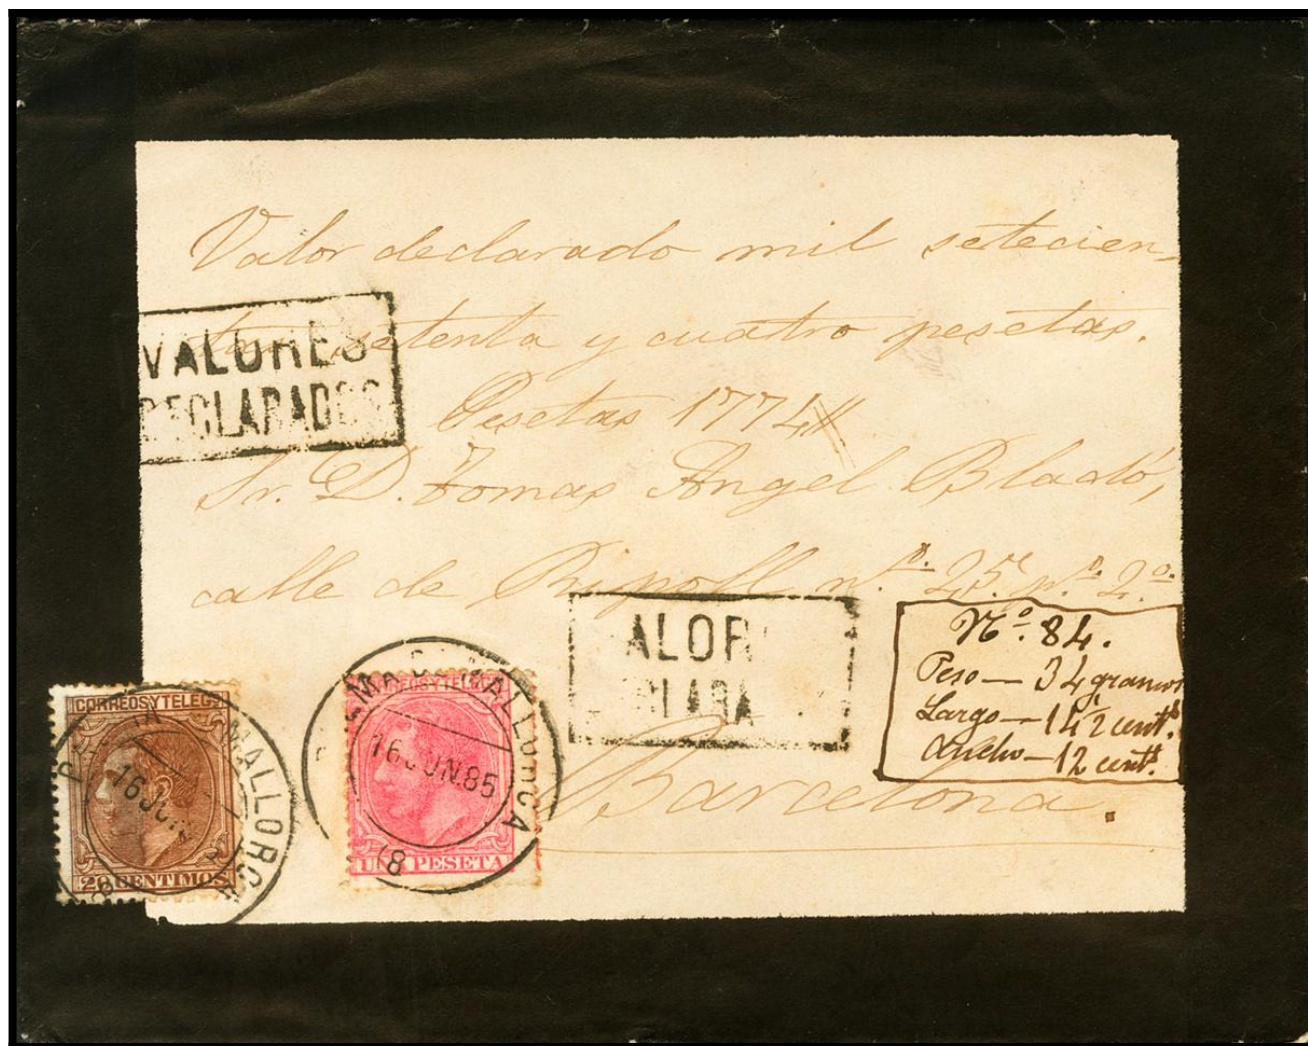 Valor declarado mil setecien-
tas setenta y cuatro pesetas.
VALORES
DECLARADOS
Pesetas 1774//
Sr. D. Tomas Angel Bladó,
calle de Ripoll n.º 25, p.º 2.º
VALOR
DECLARA
Nº. 84.
Peso — 34 gramos
Largo — 14½ cent.s
Ancho — 12 cent.s
Barcelona.
CORREOS Y TELEG
MALLORCA
16 JUN
20 CENTIMOS
CORREOS Y TELEG
PALMA DE MALLORCA
16 JUN.85
(8)
UNA PESETA